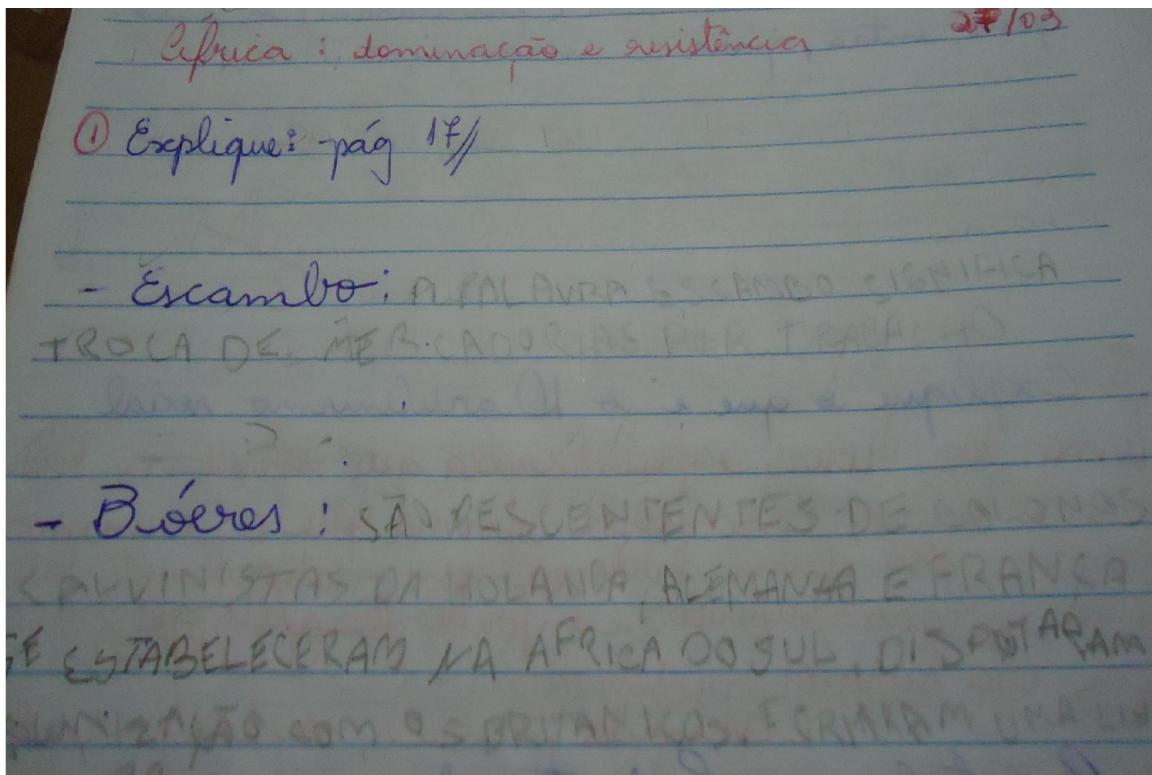 27/03
África : dominação e resistência
① Explique: pág 17//
- Escambo: A PALAVRA ESCAMBO SIGNIFICA
TROCA DE MERCADORIAS POR TRABALHO
- Bóeres : SÃO DESCENTENTES DE COLONOS
CALVINISTAS DA HOLANDA, ALEMANHA E FRANÇA
SE ESTABELECERAM NA AFRICA DO SUL, DISPUTARAM
COM OS BRITANICOS, E CRIARAM UMA